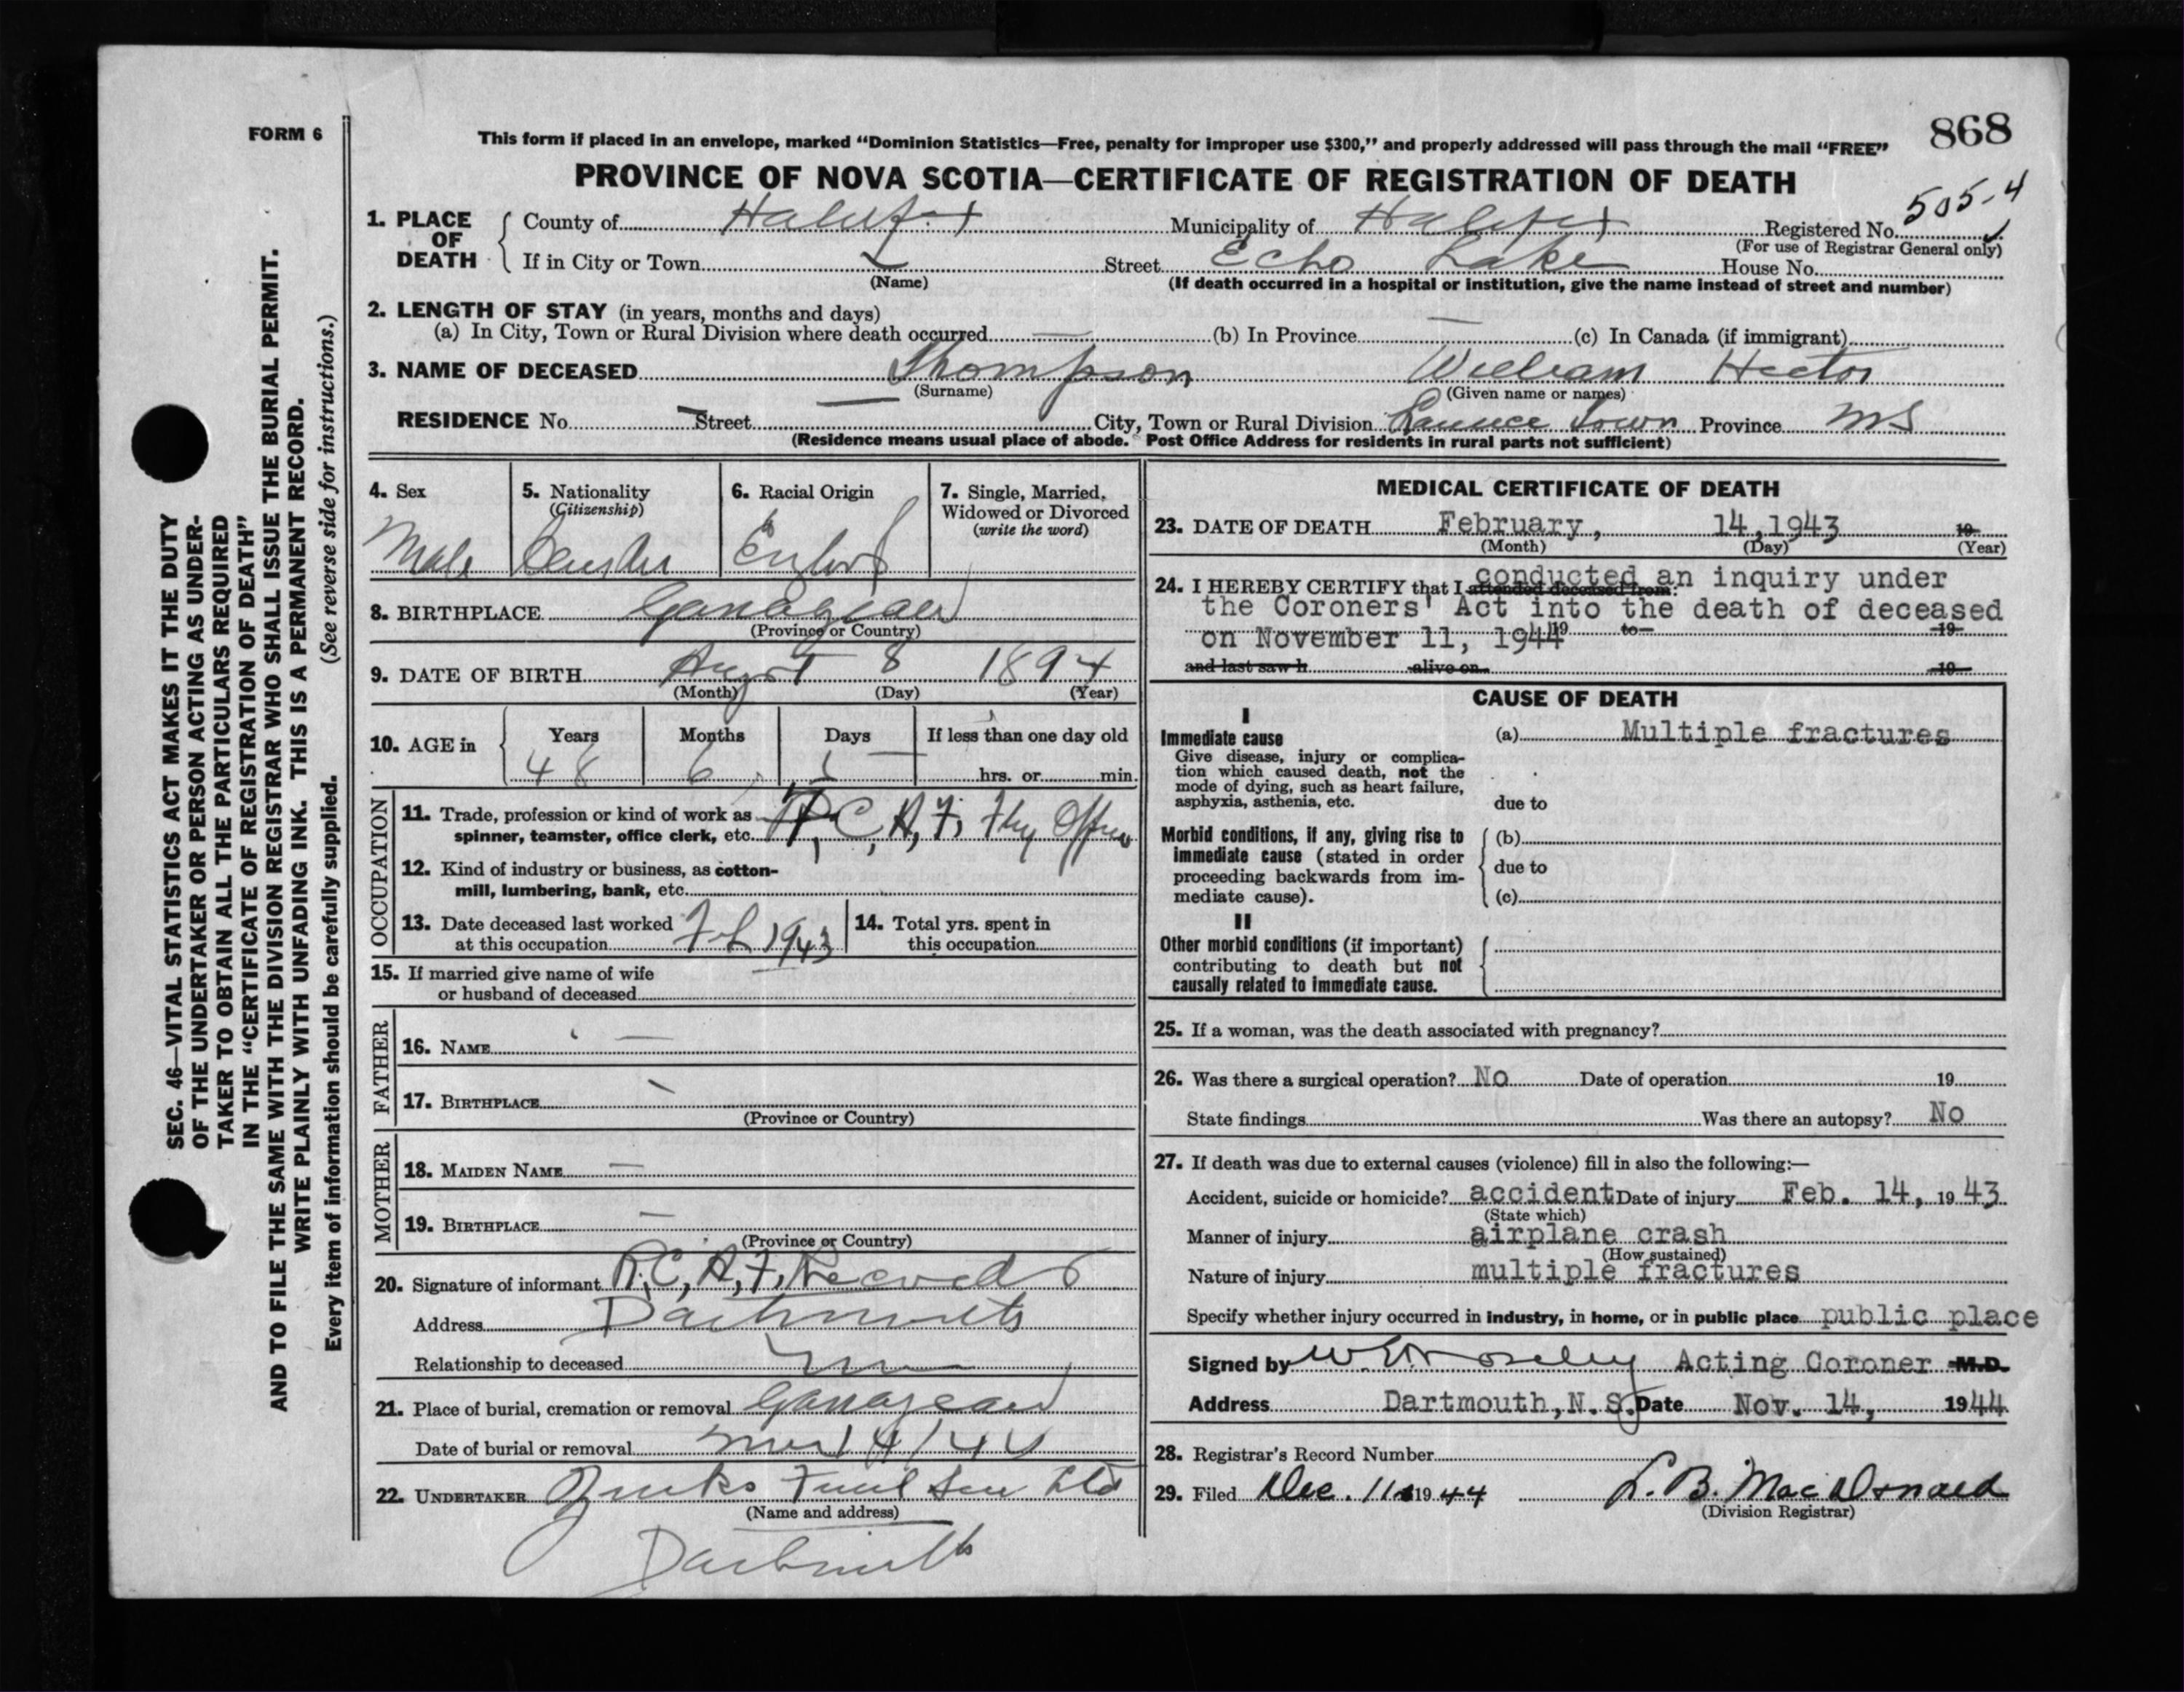 FORM 6
This form if placed in an envelope, marked "Dominion Statistics—Free, penalty for improper use $300," and properly addressed will pass through the mail "FREE"
868
PROVINCE OF NOVA SCOTIA—CERTIFICATE OF REGISTRATION OF DEATH
505-4
1. PLACE OF DEATH
County of Halifax Municipality of Halifax Registered No.
(For use of Registrar General only)
If in City or Town Street Echo Lake House No.
(Name) (If death occurred in a hospital or institution, give the name instead of street and number)
2. LENGTH OF STAY (in years, months and days)
(a) In City, Town or Rural Division where death occurred — (b) In Province — (c) In Canada (if immigrant)
3. NAME OF DECEASED Thompson William Hector
(Surname) (Given name or names)
RESIDENCE No. — Street — City, Town or Rural Division Town Province NS
(Residence means usual place of abode. Post Office Address for residents in rural parts not sufficient)
4. Sex
Male
5. Nationality
(Citizenship)
6. Racial Origin
7. Single, Married,
Widowed or Divorced
(write the word)
8. BIRTHPLACE
(Province or Country)
9. DATE OF BIRTH August 8 1894
(Month) (Day) (Year)
10. AGE in
Years Months Days If less than one day old
48 6 hrs. or min.
OCCUPATION
11. Trade, profession or kind of work as
spinner, teamster, office clerk, etc. R.C.A.F.
12. Kind of industry or business, as cotton-
mill, lumbering, bank, etc.
13. Date deceased last worked
at this occupation Feb 1943
14. Total yrs. spent in
this occupation
15. If married give name of wife
or husband of deceased
FATHER
16. NAME —
17. BIRTHPLACE —
(Province or Country)
MOTHER
18. MAIDEN NAME —
19. BIRTHPLACE —
(Province or Country)
20. Signature of informant R.C.A.F. Records
Address Dartmouth
Relationship to deceased
21. Place of burial, cremation or removal
Date of burial or removal
22. UNDERTAKER Ltd
(Name and address)
Dartmouth
MEDICAL CERTIFICATE OF DEATH
23. DATE OF DEATH February, 14,1943 19
(Month) (Day) (Year)
24. I HEREBY CERTIFY that I attended deceased from: conducted an inquiry under
the Coroners' Act into the death of deceased
on November 11, 1944 19 to 19
and last saw h alive on 19
CAUSE OF DEATH
I
Immediate cause
Give disease, injury or complica-
tion which caused death, not the
mode of dying, such as heart failure,
asphyxia, asthenia, etc.
(a) Multiple fractures
due to
Morbid conditions, if any, giving rise to
immediate cause (stated in order
proceeding backwards from im-
mediate cause).
(b)
due to
(c)
II
Other morbid conditions (if important)
contributing to death but not
causally related to immediate cause.
25. If a woman, was the death associated with pregnancy?
26. Was there a surgical operation? No Date of operation 19
State findings Was there an autopsy? No
27. If death was due to external causes (violence) fill in also the following:—
Accident, suicide or homicide? accident Date of injury Feb. 14, 1943
(State which)
Manner of injury airplane crash
(How sustained)
Nature of injury multiple fractures
Specify whether injury occurred in industry, in home, or in public place public place
Signed by Acting Coroner M.D.
Address Dartmouth, N.S. Date Nov. 14, 1944
28. Registrar's Record Number
29. Filed Dec. 11 1944 L.B. MacDonald
(Division Registrar)
SEC. 46—VITAL STATISTICS ACT MAKES IT THE DUTY
OF THE UNDERTAKER OR PERSON ACTING AS UNDER-
TAKER TO OBTAIN ALL THE PARTICULARS REQUIRED
IN THE "CERTIFICATE OF REGISTRATION OF DEATH"
AND TO FILE THE SAME WITH THE DIVISION REGISTRAR WHO SHALL ISSUE THE BURIAL PERMIT.
WRITE PLAINLY WITH UNFADING INK. THIS IS A PERMANENT RECORD.
Every item of information should be carefully supplied. (See reverse side for instructions.)